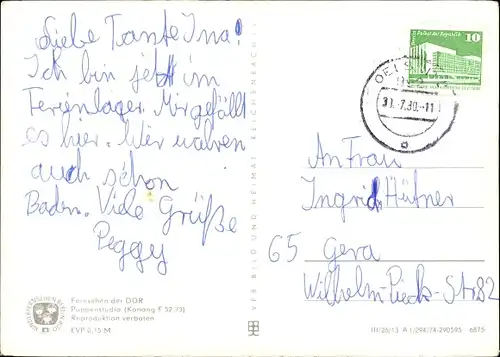 Liebe Tante Ina!
Ich bin jetzt im
Ferienlager. Mir gefällt
es hier. Wir wahren
auch schon
Baden. Viele Grüße
Peggy
Fernsehen der DDR
Puppenstudio (Konong F 52 73)
Reproduktion verboten
EVP 0,15 M
VEB BILD UND HEIMAT REICHENBACH
Palast der Republik
10
OELS
An Frau
Ingrid Hütner
65 Gera
Wilhelm-Pieck-Str 82
III/26/13 A 1/294/74-290595 6875